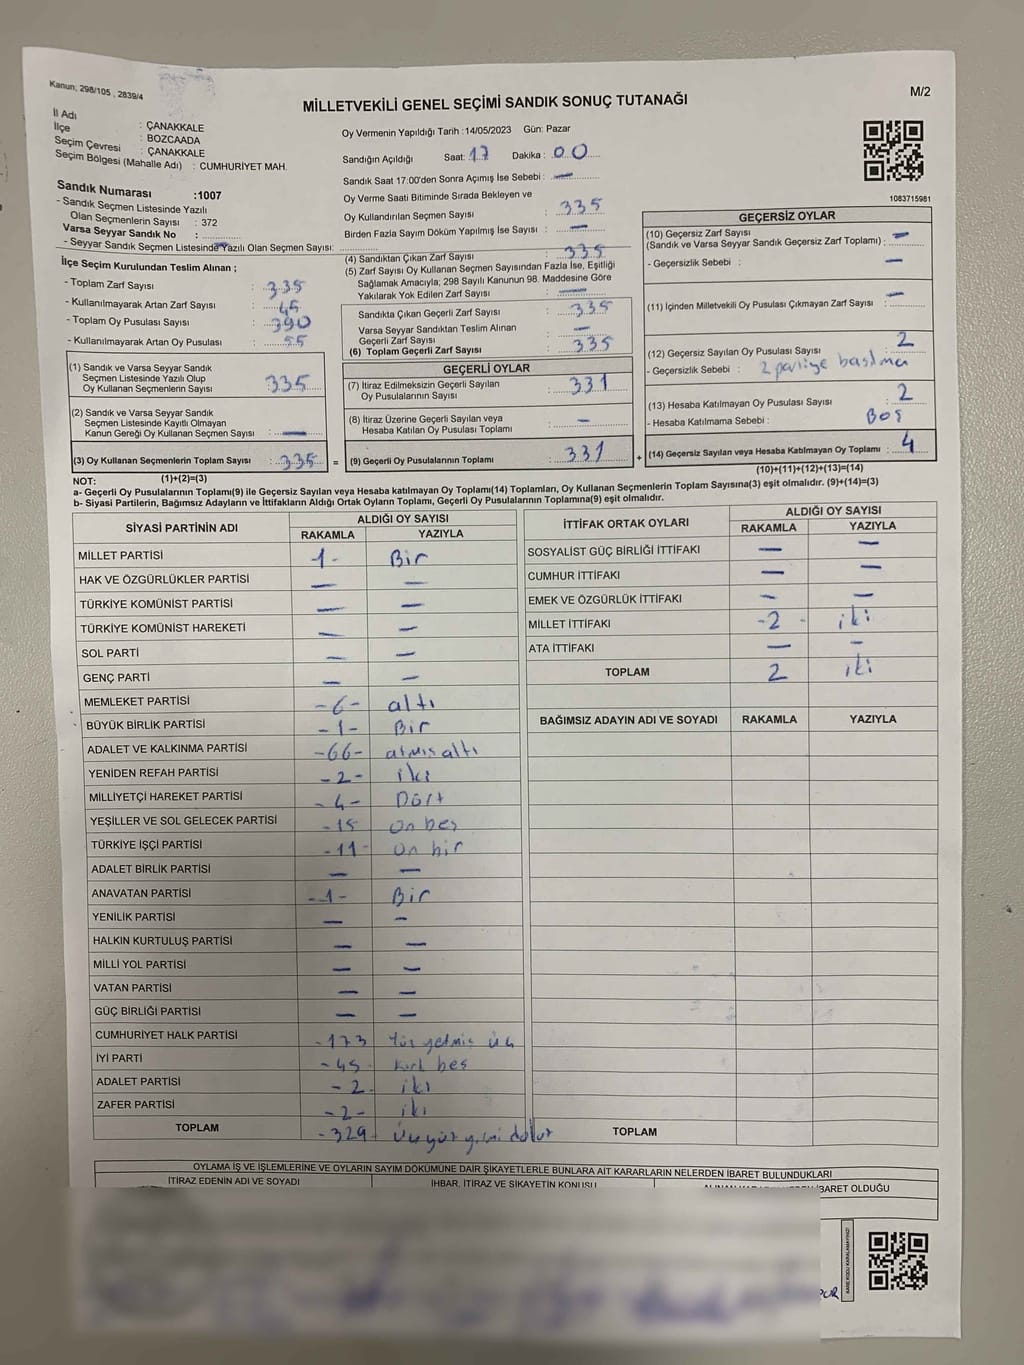 Kanun; 298/105 , 2839/4
M/2
MİLLETVEKİLİ GENEL SEÇİMİ SANDIK SONUÇ TUTANAĞI
İl Adı : ÇANAKKALE
İlçe : BOZCAADA
Seçim Çevresi : ÇANAKKALE
Seçim Bölgesi (Mahalle Adı) : CUMHURİYET MAH.
Oy Vermenin Yapıldığı Tarih :14/05/2023 Gün: Pazar
Sandığın Açıldığı Saat: 17 Dakika : 00
Sandık Saat 17:00'den Sonra Açımış İse Sebebi : —
Oy Verme Saati Bitiminde Sırada Bekleyen ve
Oy Kullandırılan Seçmen Sayısı : 335
Birden Fazla Sayım Döküm Yapılmış İse Sayısı : —
1083715981
Sandık Numarası :1007
- Sandık Seçmen Listesinde Yazılı
Olan Seçmenlerin Sayısı : 372
Varsa Seyyar Sandık No :
- Seyyar Sandık Seçmen Listesinde Yazılı Olan Seçmen Sayısı:
İlçe Seçim Kurulundan Teslim Alınan ;
- Toplam Zarf Sayısı : 335
- Kullanılmayarak Artan Zarf Sayısı : 45
- Toplam Oy Pusulası Sayısı : 390
- Kullanılmayarak Artan Oy Pusulası : 55
(1) Sandık ve Varsa Seyyar Sandık
Seçmen Listesinde Yazılı Olup
Oy Kullanan Seçmenlerin Sayısı : 335
(2) Sandık ve Varsa Seyyar Sandık
Seçmen Listesinde Kayıtlı Olmayan
Kanun Gereği Oy Kullanan Seçmen Sayısı : —
(3) Oy Kullanan Seçmenlerin Toplam Sayısı : 335 =
(4) Sandıktan Çıkan Zarf Sayısı : 335
(5) Zarf Sayısı Oy Kullanan Seçmen Sayısından Fazla İse, Eşitliği
Sağlamak Amacıyla; 298 Sayılı Kanunun 98. Maddesine Göre
Yakılarak Yok Edilen Zarf Sayısı : —
Sandıkta Çıkan Geçerli Zarf Sayısı : 335
Varsa Seyyar Sandıktan Teslim Alınan
Geçerli Zarf Sayısı : —
(6) Toplam Geçerli Zarf Sayısı : 335
GEÇERLİ OYLAR
(7) İtiraz Edilmeksizin Geçerli Sayılan
Oy Pusulalarının Sayısı : 331
(8) İtiraz Üzerine Geçerli Sayılan veya
Hesaba Katılan Oy Pusulası Toplamı : —
(9) Geçerli Oy Pusulalarının Toplamı : 331 +
GEÇERSİZ OYLAR
(10) Geçersiz Zarf Sayısı
(Sandık ve Varsa Seyyar Sandık Geçersiz Zarf Toplamı) : —
- Geçersizlik Sebebi : —
(11) İçinden Milletvekili Oy Pusulası Çıkmayan Zarf Sayısı : —
(12) Geçersiz Sayılan Oy Pusulası Sayısı : 2
- Geçersizlik Sebebi : 2 partiye basılma
(13) Hesaba Katılmayan Oy Pusulası Sayısı : 2
- Hesaba Katılmama Sebebi : Boş
(14) Geçersiz Sayılan veya Hesaba Katılmayan Oy Toplamı : 4
NOT: (1)+(2)=(3)
(10)+(11)+(12)+(13)=(14)
a- Geçerli Oy Pusulalarının Toplamı(9) ile Geçersiz Sayılan veya Hesaba katılmayan Oy Toplamı(14) Toplamları, Oy Kullanan Seçmenlerin Toplam Sayısına(3) eşit olmalıdır. (9)+(14)=(3)
b- Siyasi Partilerin, Bağımsız Adayların ve İttifakların Aldığı Ortak Oyların Toplamı, Geçerli Oy Pusulalarının Toplamına(9) eşit olmalıdır.
SİYASİ PARTİNİN ADI ALDIĞI OY SAYISI
RAKAMLA YAZIYLA
MİLLET PARTİSİ 1- Bir
HAK VE ÖZGÜRLÜKLER PARTİSİ — —
TÜRKİYE KOMÜNİST PARTİSİ — —
TÜRKİYE KOMÜNİST HAREKETİ — —
SOL PARTİ — —
GENÇ PARTİ — —
MEMLEKET PARTİSİ -6- altı
BÜYÜK BİRLİK PARTİSİ -1- Bir
ADALET VE KALKINMA PARTİSİ -66- atmış altı
YENİDEN REFAH PARTİSİ -2- iki
MİLLİYETÇİ HAREKET PARTİSİ -4- Dört
YEŞİLLER VE SOL GELECEK PARTİSİ -15 on beş
TÜRKİYE İŞÇİ PARTİSİ -11- on bir
ADALET BİRLİK PARTİSİ — —
ANAVATAN PARTİSİ -1- Bir
YENİLİK PARTİSİ — —
HALKIN KURTULUŞ PARTİSİ — —
MİLLİ YOL PARTİSİ — —
VATAN PARTİSİ — —
GÜÇ BİRLİĞİ PARTİSİ — —
CUMHURİYET HALK PARTİSİ -173 Yüz yetmiş üç
İYİ PARTİ -45- kırk beş
ADALET PARTİSİ -2- iki
ZAFER PARTİSİ -2- iki
TOPLAM -329-
İTTİFAK ORTAK OYLARI ALDIĞI OY SAYISI
RAKAMLA YAZIYLA
SOSYALİST GÜÇ BİRLİĞİ İTTİFAKI — —
CUMHUR İTTİFAKI — —
EMEK VE ÖZGÜRLÜK İTTİFAKI — —
MİLLET İTTİFAKI -2- iki
ATA İTTİFAKI — —
TOPLAM 2 iki
BAĞIMSIZ ADAYIN ADI VE SOYADI RAKAMLA YAZIYLA
TOPLAM
OYLAMA İŞ VE İŞLEMLERİNE VE OYLARIN SAYIM DÖKÜMÜNE DAİR ŞİKAYETLERLE BUNLARA AİT KARARLARIN NELERDEN İBARET BULUNDUKLARI
İTİRAZ EDENİN ADI VE SOYADI İHBAR, İTİRAZ VE ŞİKAYETİN KONUSU İBARET OLDUĞU